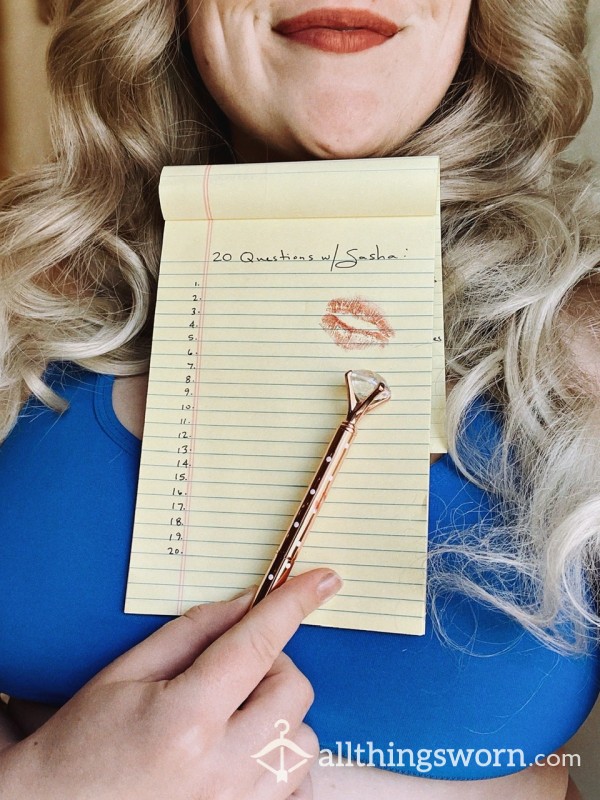 20 Questions w/ Sasha:
1.
2.
3.
4.
5.
6.
7.
8.
9.
10.
11.
12.
13.
14.
15.
16.
17.
18.
19.
20.
es
allthingsworn.com